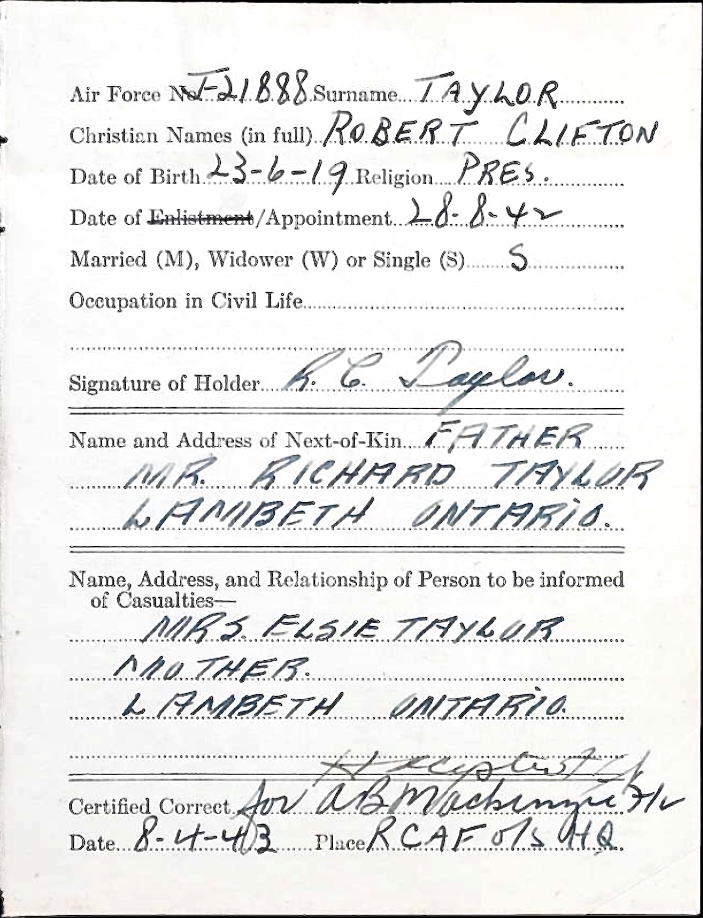 Air Force No. J-21888 Surname TAYLOR
Christian Names (in full) ROBERT CLIFTON
Date of Birth 23-6-19 Religion PRES.
Date of Enlistment/Appointment 28-8-42
Married (M), Widower (W) or Single (S) S
Occupation in Civil Life
Signature of Holder R. C. Taylor.
Name and Address of Next-of-Kin FATHER
MR. RICHARD TAYLOR
LAMBETH ONTARIO.
Name, Address, and Relationship of Person to be informed
of Casualties—
MRS. ELSIE TAYLOR
MOTHER.
LAMBETH ONTARIO.
Certified Correct for A B Mackenzie F/L
Date 8-4-43 Place RCAF O/S HQ